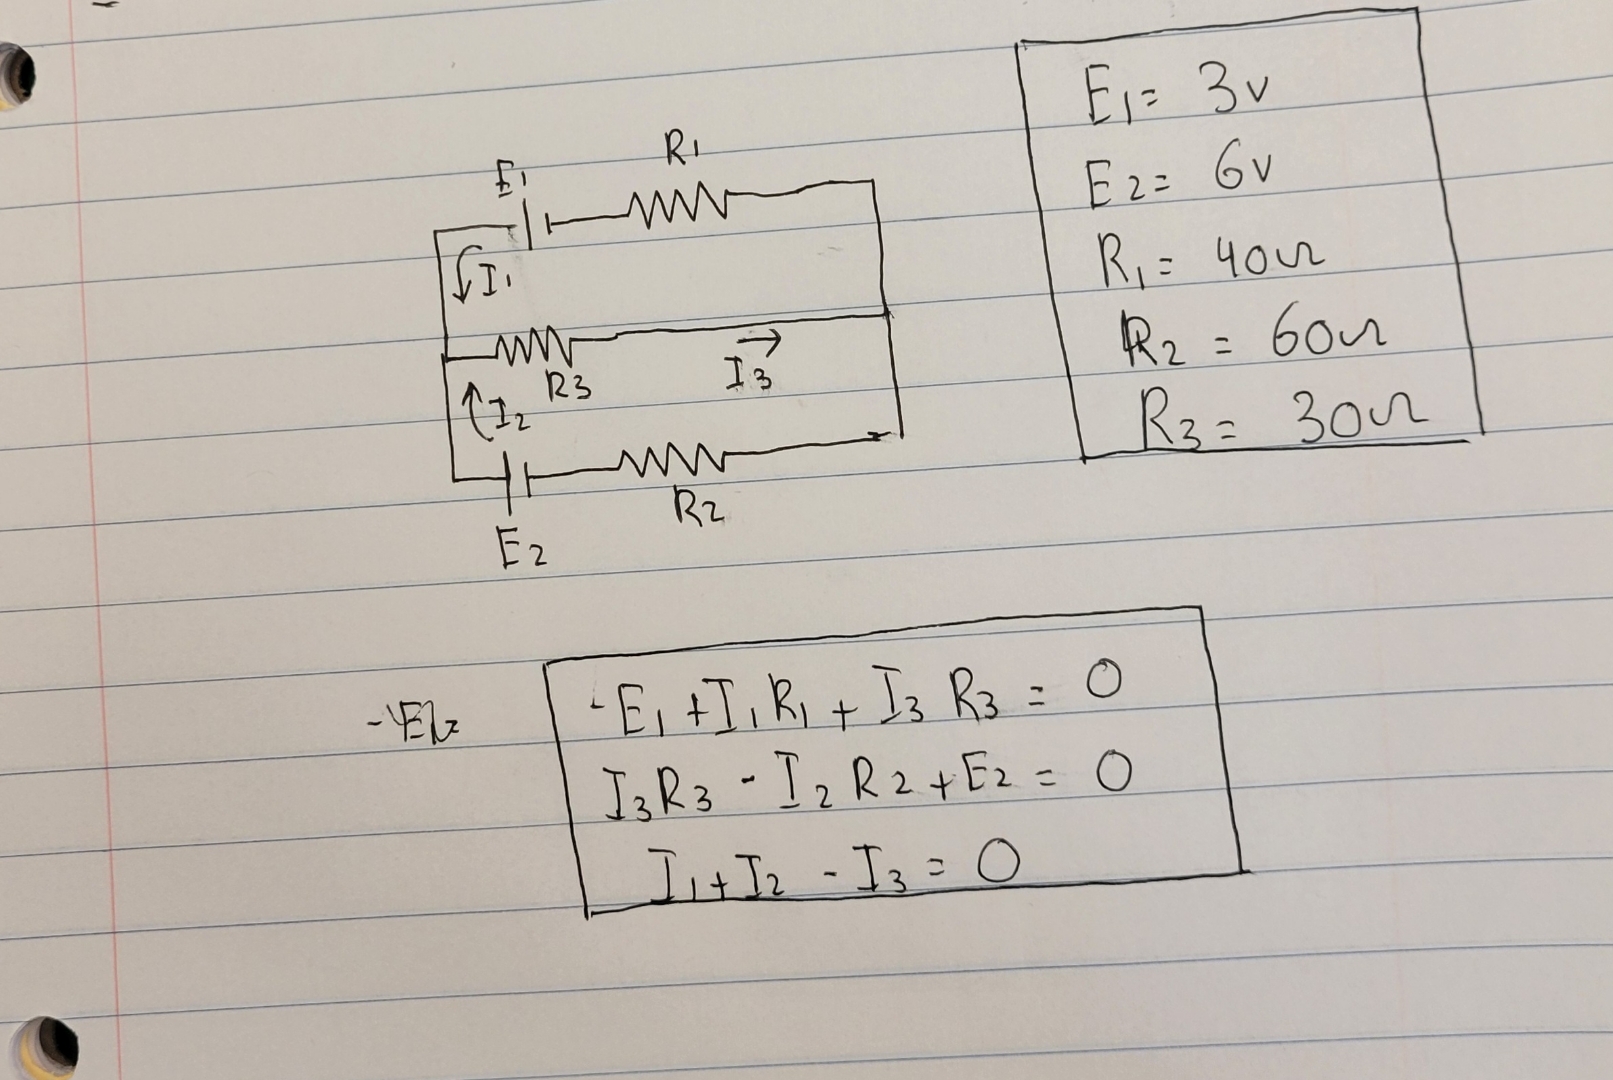 E1
R1
I1
R3
I3
I2
R2
E2
E1= 3v
E2= 6v
R1= 40Ω
R2 = 60Ω
R3= 30Ω
-E1 +I1R1 + I3 R3 = 0
I3R3 - I2 R2 +E2 = 0
I1+I2 - I3 = 0